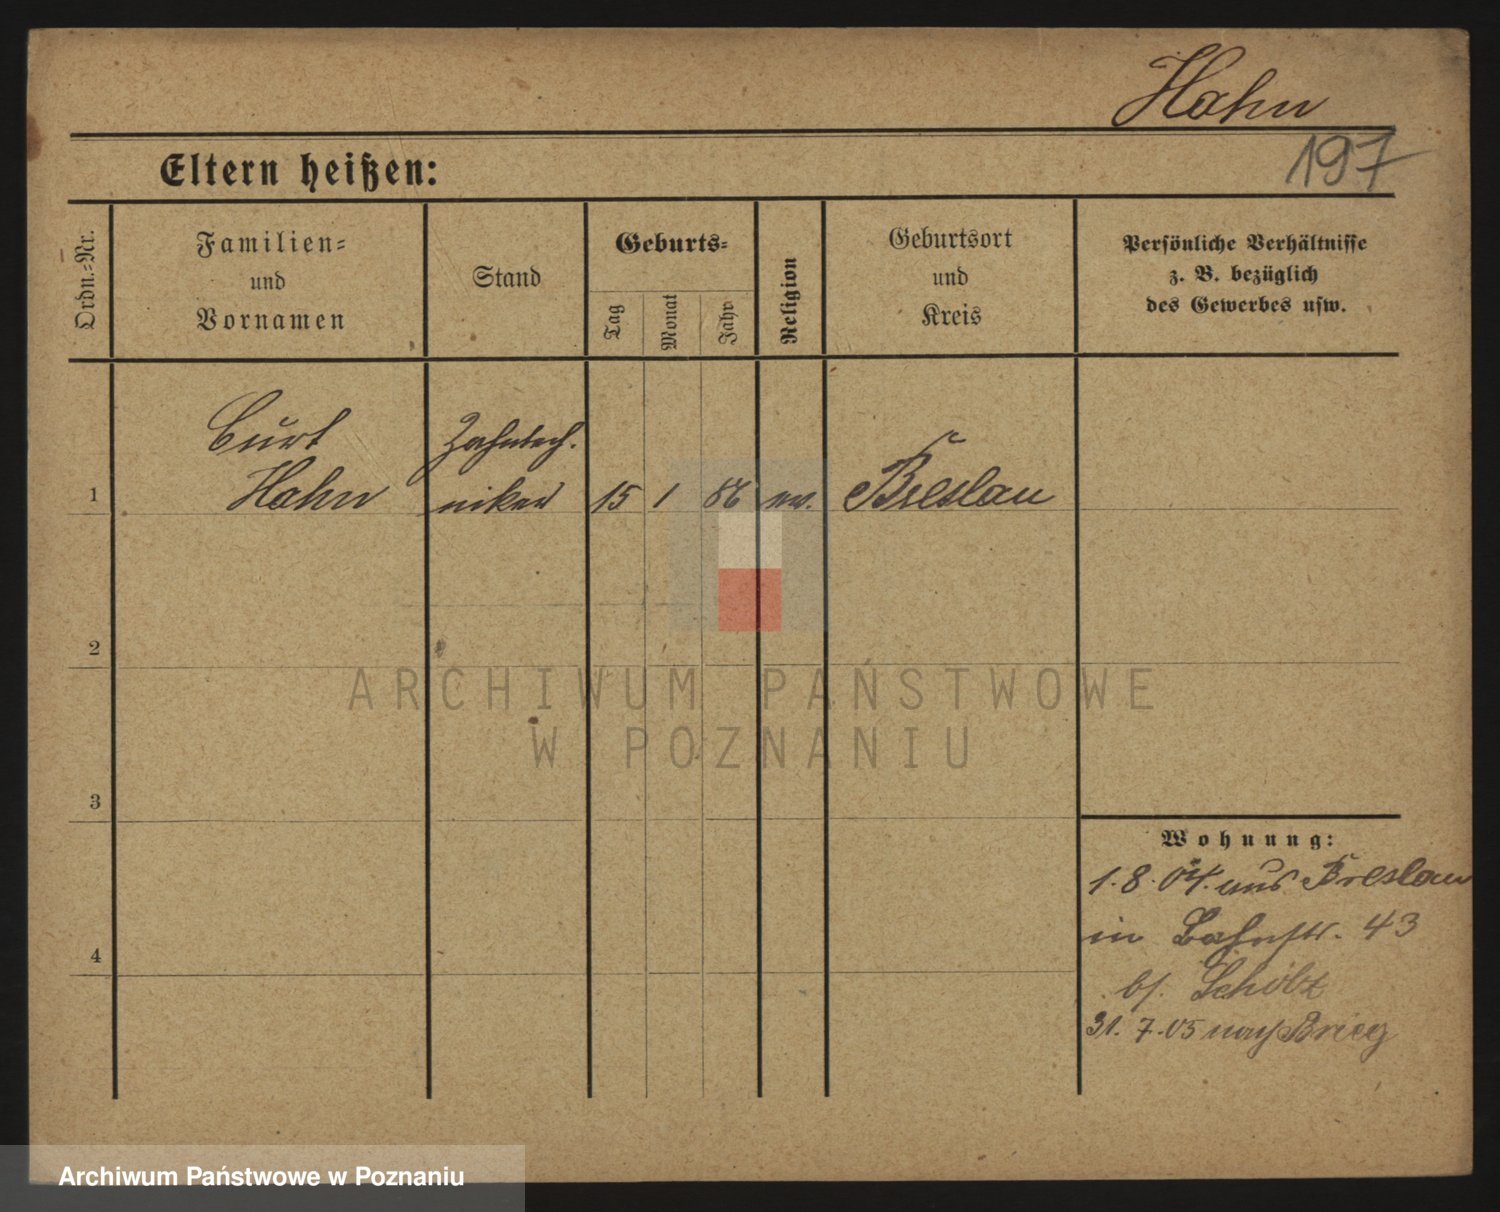 Hahn
197
Eltern heißen:
Ordn.=Nr.
Familien=
und
Vornamen
Stand
Geburts=
Tag
Monat
Jahr
Religion
Geburtsort
und
Kreis
Persönliche Verhältnisse
z. B. bezüglich
des Gewerbes usw.
Curt
Hahn
Zahntech.
niker
1
15
1
86
ev.
Breslau
2
3
4
Wohnung:
1. 8. 04. aus Breslau
in Bahnstr. 43
b/. Scholz
31. 7. 05 nach Brieg
ARCHIWUM PAŃSTWOWE
W POZNANIU
Archiwum Państwowe w Poznaniu